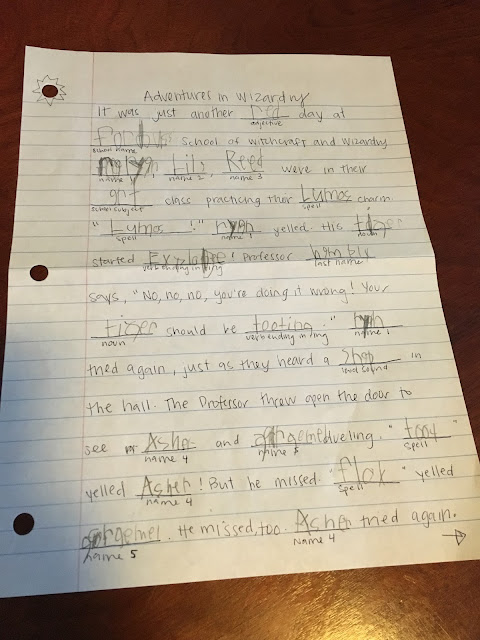 Adventures in Wizardry
It was just another red day at
adjective
School of Witchcraft and Wizardry.
school name
Lily, Reed were in their
name 1 name 2 name 3
art class practicing their Lumos charm.
school subject spell
"Lumos!" yelled. His tiger
spell name 1 noun
started ! Professor
verb ending in ing last name
says, "No, no, no, you're doing it wrong! Your
tiger should be tooting." 
noun verb ending in ing name 1
tried again, just as they heard a in
loud sound
the hall. The Professor threw open the door to
see Asher and dueling. "
name 4 name 5 spell
yelled Asher! But he missed. "flox" yelled
name 4 spell
. He missed, too. Asher tried again.
name 5 name 4